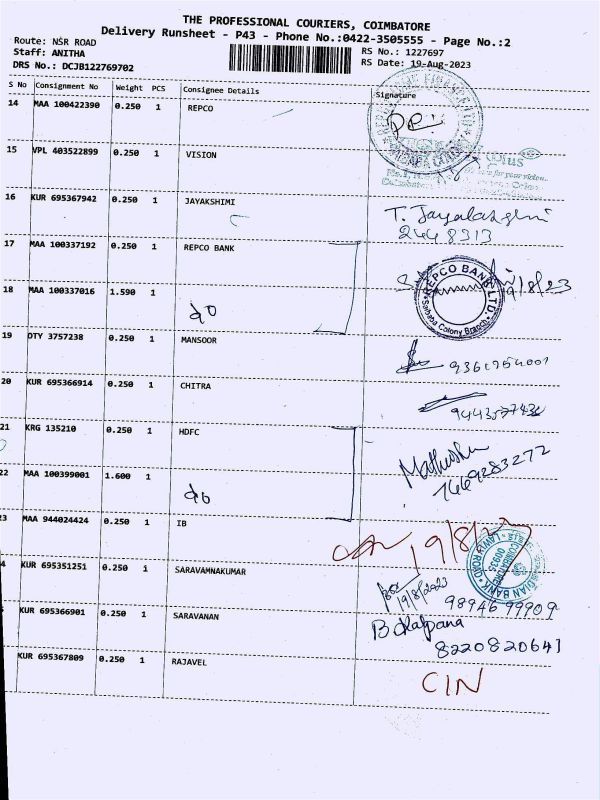 THE PROFESSIONAL COURIERS, COIMBATORE
Delivery Runsheet - P43 - Phone No.:0422-3505555 - Page No.:2
Route: NSR ROAD
Staff: ANITHA
DRS No.: DCJB122769702
RS No.: 1227697
RS Date: 19-Aug-2023
S No Consignment No Weight PCS Consignee Details Signature
14 MAA 100422390 0.250 1 REPCO
15 VPL 403522899 0.250 1 VISION
16 KUR 695367942 0.250 1 JAYAKSHIMI
T. Jayalakshmi
2448313
17 MAA 100337192 0.250 1 REPCO BANK
REPCO BANK LTD.
Saibaba Colony Branch
19/8/23
18 MAA 100337016 1.590 1 do
19 OTY 3757238 0.250 1 MANSOOR
20 KUR 695366914 0.250 1 CHITRA
21 KRG 135210 0.250 1 HDFC
7669283272
22 MAA 100399001 1.600 1 do
23 MAA 944024424 0.250 1 IB
19/8/23
INDIAN BANK
LAWLY ROAD
COIMBATORE
00935
4 KUR 695351251 0.250 1 SARAVAMNAKUMAR
19/8/2023
98946 99909
KUR 695366901 0.250 1 SARAVANAN
B. Kalpana
8220820641
KUR 695367809 0.250 1 RAJAVEL
CIN